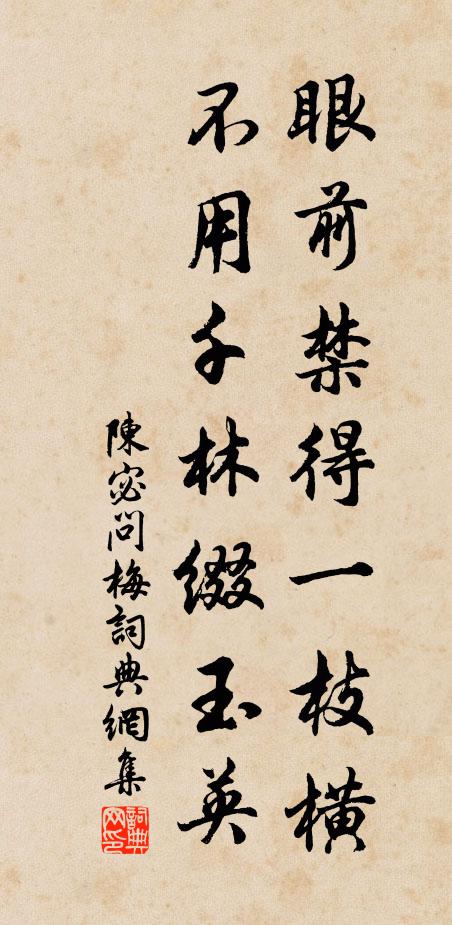 眼前禁得一枝橫
不用千林綴玉英
陳宓問梅詞典網集
詞典網印